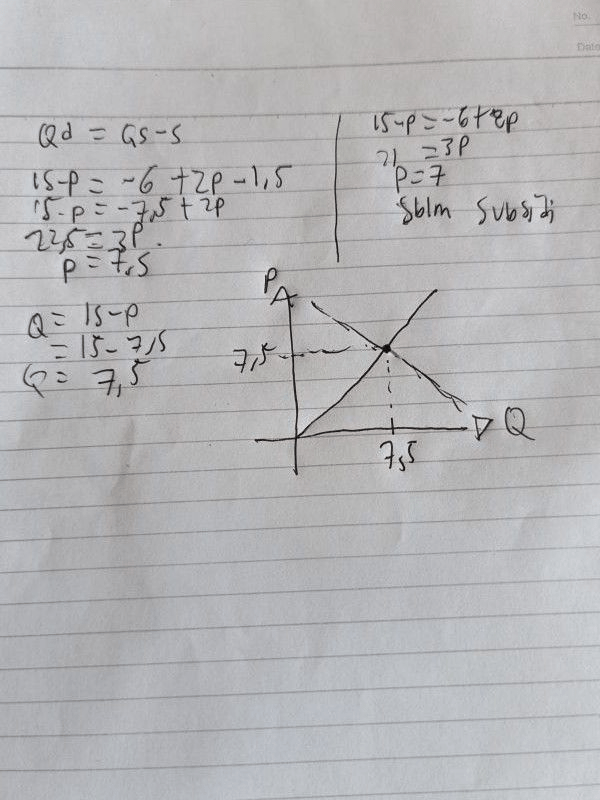 No.
Date
Qd = QS-S
15-P = -6 +2P-1,5
15-P = -7,5 + 2P
22,5 = 3P.
P = 7,5
Q = 15-P
= 15 - 7,5
Q = 7,5
15-P = -6+2P
21 = 3P
P = 7
Sblm Subsidi
P
7,5
7,5
Q